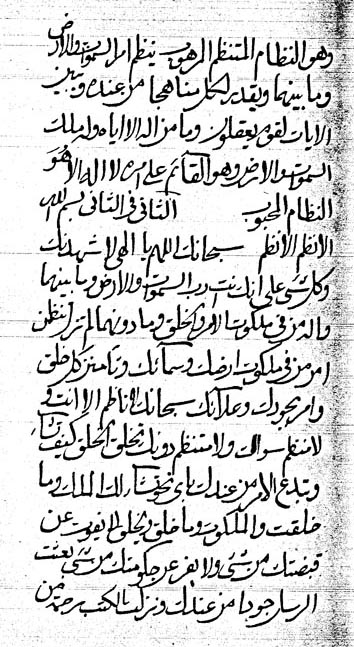 وهو النظام المنتظم المرهوب ينظم امر السموات والارض
وما بينهما ويقدر لكل مناهجا من عنده ويبين
الايات لقوم يعقلون وما من اله الا اياه وله ملك
السموات والارض وهو القائم على امره لا اله الا هو
النظام المحبوب الثانی فی الثانی بسم الله
الانظم الانظم سبحانك اللهم يا الهی لاشهدنك
وكل شیء علی انك انت رب السموات والارض وما بينهما
واله من فی ملكوت الامر والخلق وما دونهما لم تزل تنظمن
امر من فی ملكوت ارضك وسمائك كل خلق
وامر بجودك سبحانك لا ناظم الا انت و
لا منتظم سواك ولا منتظم دونك تخلق الخلق كيف
وتبدع الامر من عندك لك الملك وما
خلقت والملكوت وما خلق لا يفوت عن
قبضتك من شیء ولا يفر عن حكومتك من شیء بعثت
الرسل جودا من عندك ونزلت الكتب رحمة من